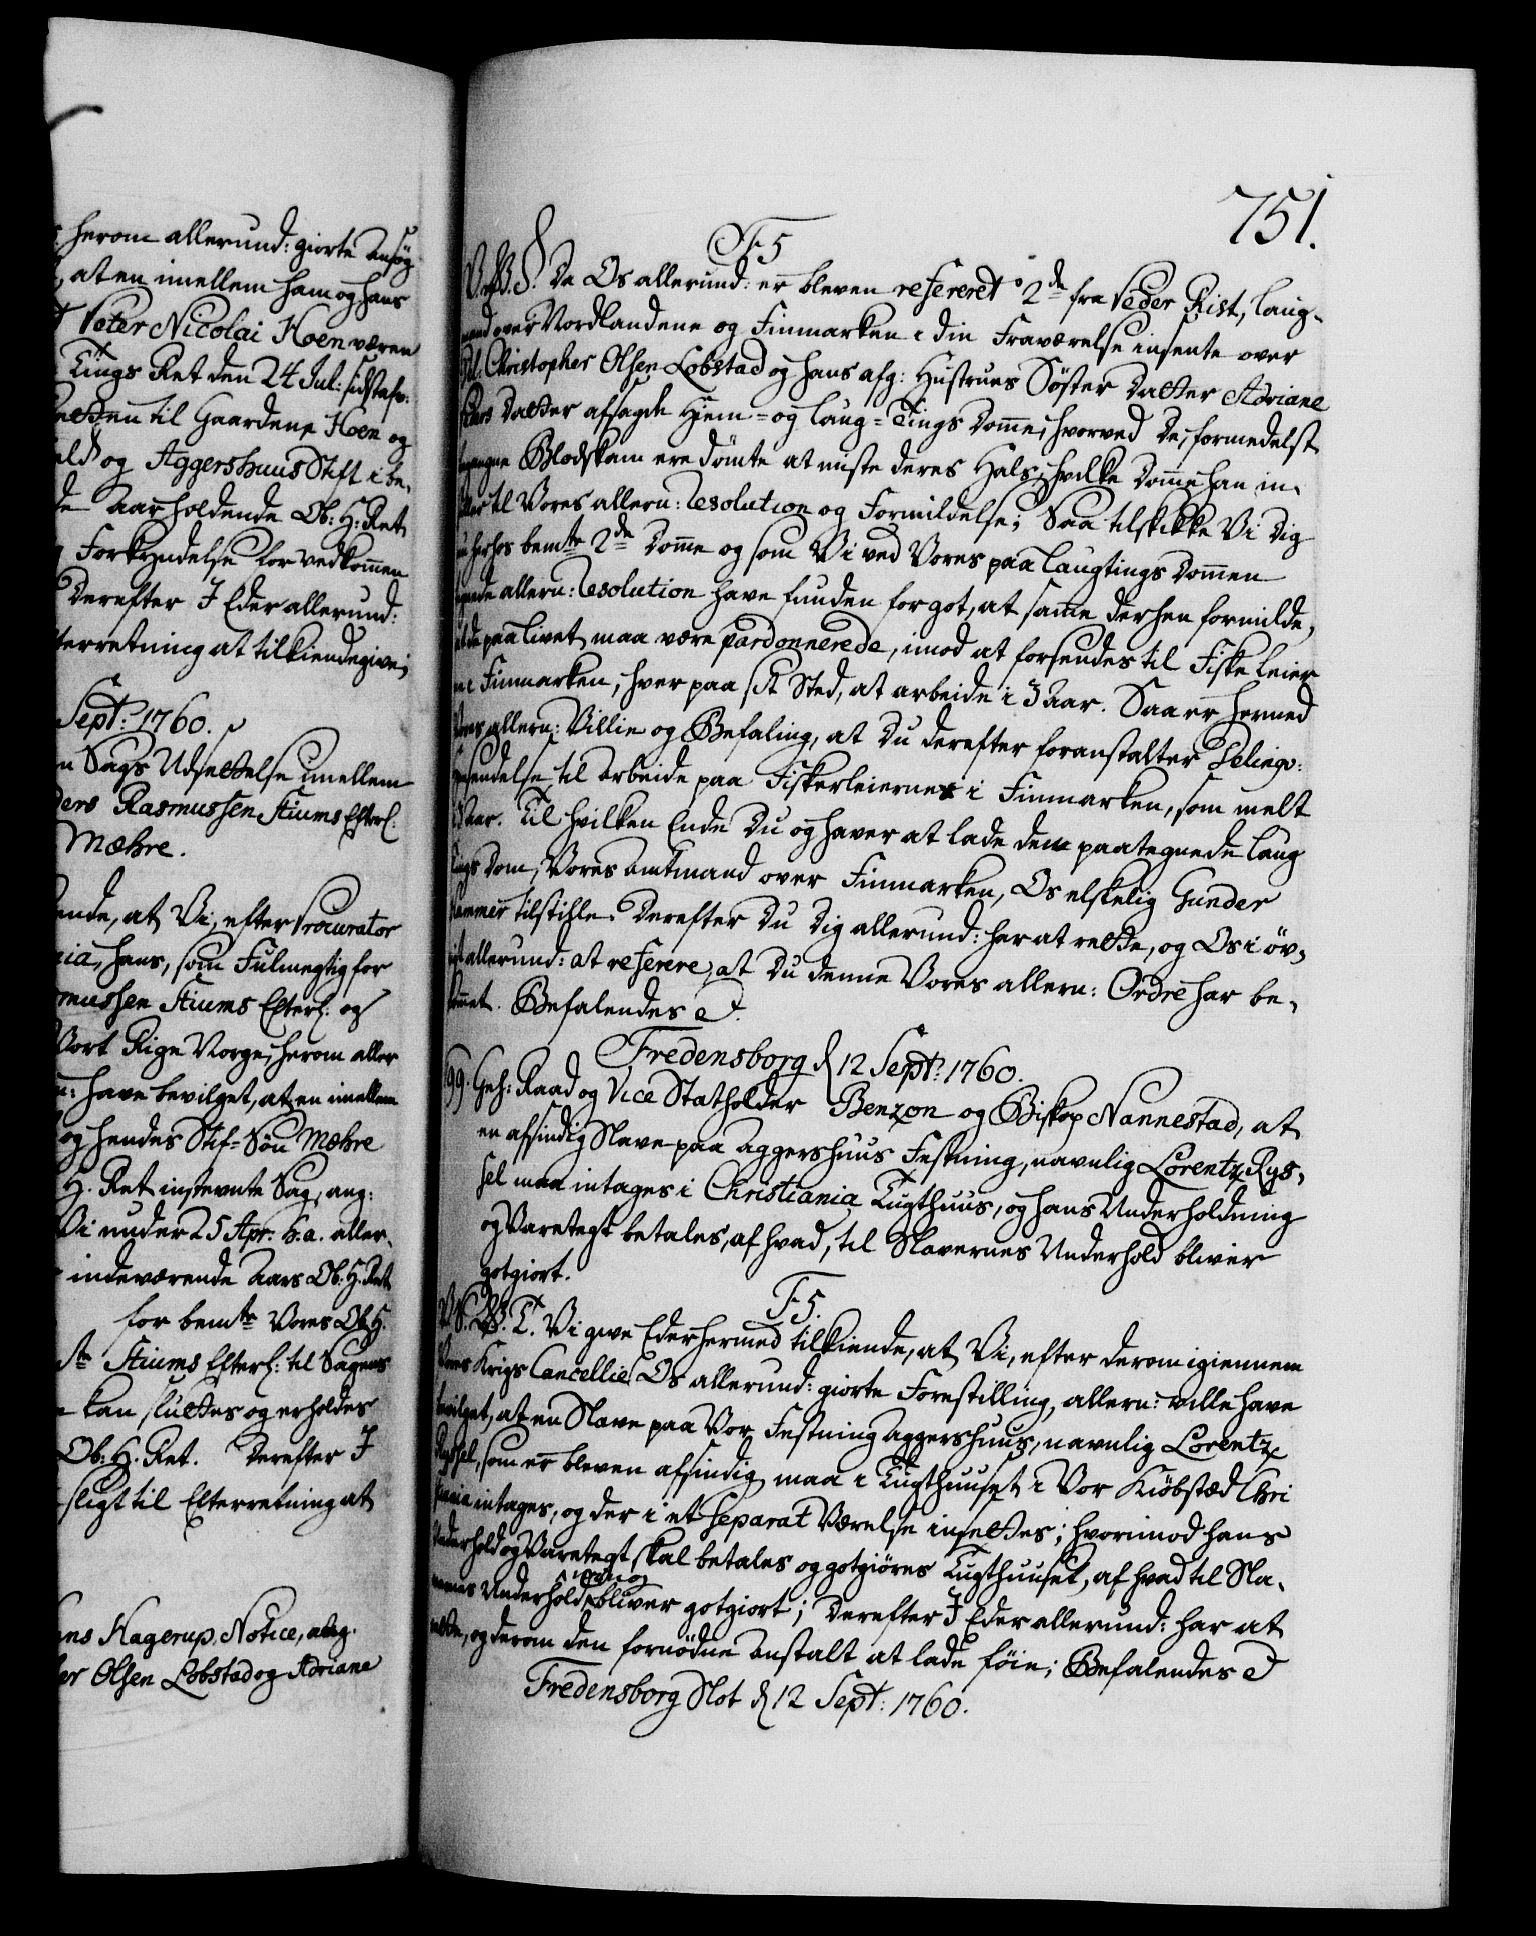 herom allerund: giorte Ansøg
at en imellem ham og hans
Peter Nicolai Hoen væren
Tings Ret den 24 Jul: sidstafv:
retten til Gaardene Hoen og
og Aggershuus Stift i be-
de Aar holdende Ob: H: Ret
Forkyndelse for vedkommen
Derefter I Eder allerund:
terretning at tilkiendegive;
Sept: 1760.
n Sags Udsættelse imellem
ders Rasmussen Stiums Efterl:
Mæhre.
ende, at Vi, efter Procurator
nia, hans, som Fulmegtig for
smussen Stiums Efterl: og
Vort Rige Norge, herom aller
n: have bevilget, at en imellem
og hendes Stif-Søn Mæhre
H. Ret instevnte Sag, ang:
Vi under 25 Apr: h.a. aller-
indeværende Aars Ob: H. Ret
for bemte Vores Ob: H.
Stiums Efterl: til Sagens
kan sluttes og erholdes
Ob: H. Ret. Derefter I
sligt til Efterretning at
ans Hagerup. Notice, ang.
er Olsen Lobstad og Adriane
751.
F5
V.G.G. Da Os allerund: er bleven refereret 2de fra Peder Rist, Laug-
mand over Nordlandene og Finmarken i din Fraværelse insente over
Christopher Olsen Lobstad og hans afg: Hustrues Søster Datter Adriane
Datter afsagde Hiem- og Laug-Tings Domme, hvorved De, formedelst
begangne Blodskam ere dømte at miste deres Hals, hvilke Domme han in-
stiller til Vores allern: Resolution og Formildelse; Saa tilskikke Vi Dig
herhos bemte 2de Domme og som Vi ved Vores paa Laugtings Dommen
tegnede allern: Resolution have funden for got, at samme derhen formilde,
at de paa Livet maa være pardonnerede, imod at forsendes til Fiske Leier
ne i Finmarken, hver paa sit Sted, at arbeide i 3 Aar. Saa er hermed
Vores allern: Villie og Befaling, at Du derefter foranstalter Delinqv:
Hensendelse til Arbeide paa Fiskerleierne i Finmarken, som melt
3 Aar. Til hvilken Ende Du og haver at lade den paategnede Laug
Tings Dom, Vores Amtmand over Finmarken, Os elskelig Gunder
Hammer tilstille. Derefter Du Dig allerund: har at rette, og Os i øv-
rigt allerund: at referere, at Du denne Vores allern: Ordre har be-
kommet. Befalendes p.
Fredensborg d 12 Sept: 1760.
99. Geh: Raad og Vice Statholder Benzon og Biskop Nannestad, at
en afsindig Slave paa Aggershuus Festning, navnlig Lorentz Rys-
sel maa intages i Christiania Tugthuus, og hans Underholdning
og Varetegt betales, af hvad, til Slavernes Underhold bliver
gotgiort.
F5.
V.G.G.T. Vi give Eder hermed tilkiende, at Vi, efter derom igiennem
Vores Krigs Cancellie Os allerund: giorte Forestilling, allern: ville have
bevilget, at en Slave paa Vor Festning Aggershuus, navnlig Lorentz
Ryssel, som er bleven afsindig maa i Tugthuuset i Vor Kiøbstæd Chri
stiania intages, og der i et Separat Værelse insettes; hvorimod hans
Underhold og Varetegt skal betales og gotgiøres Tugthuuset, af hvad til Sla-
vernes Underhold bliver gotgiort; Derefter I Eder allerund: har at
rette, og derom den fornødne Anstalt at lade føie; Befalendes p
Fredensborg Slot d 12 Sept: 1760.